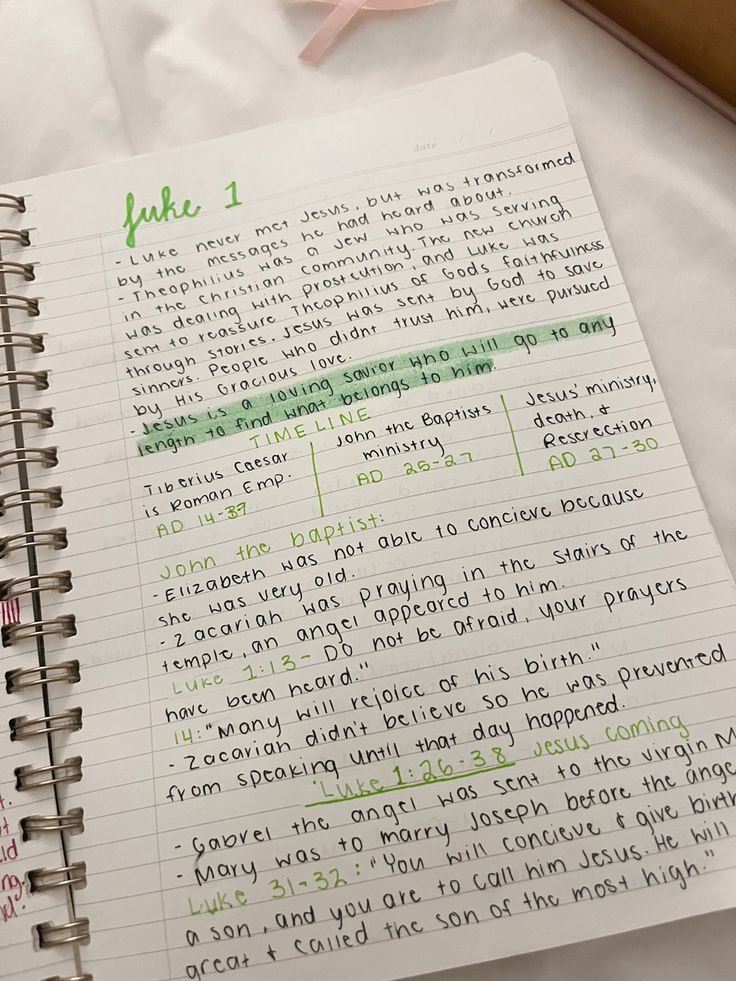 date / /
Luke 1
- Luke never met Jesus, but was transformed
by the messages he had heard about.
- Theophilius was a Jew who was serving
in the Christian community. The new church
was dealing with prosecution, and Luke was
sent to reassure Theophilius of Gods faithfulness
through stories. Jesus was sent by God to save
sinners. People who didnt trust him, were pursued
by His Gracious love.
- Jesus is a loving savior who will go to any
length to find what belongs to him.
TIMELINE
Tiberius Caesar
is Roman Emp.
AD 14-37
John the Baptists
ministry
AD 25-27
Jesus' ministry,
death, &
Resurection
AD 27-30
John the baptist:
- Elizabeth was not able to concieve because
she was very old.
- Zacariah was praying in the stairs of the
temple, an angel appeared to him.
Luke 1:13- Do not be afraid, your prayers
have been heard."
14: "Many will rejoice of his birth."
- Zacariah didn't believe so he was prevented
from speaking until that day happened.
Luke 1:26-38 Jesus coming
- Gabrel the angel was sent to the virgin M
- Mary was to marry Joseph before the ange
Luke 31-32: "You will concieve & give birt
a son, and you are to call him Jesus. He will
great & called the son of the most high."